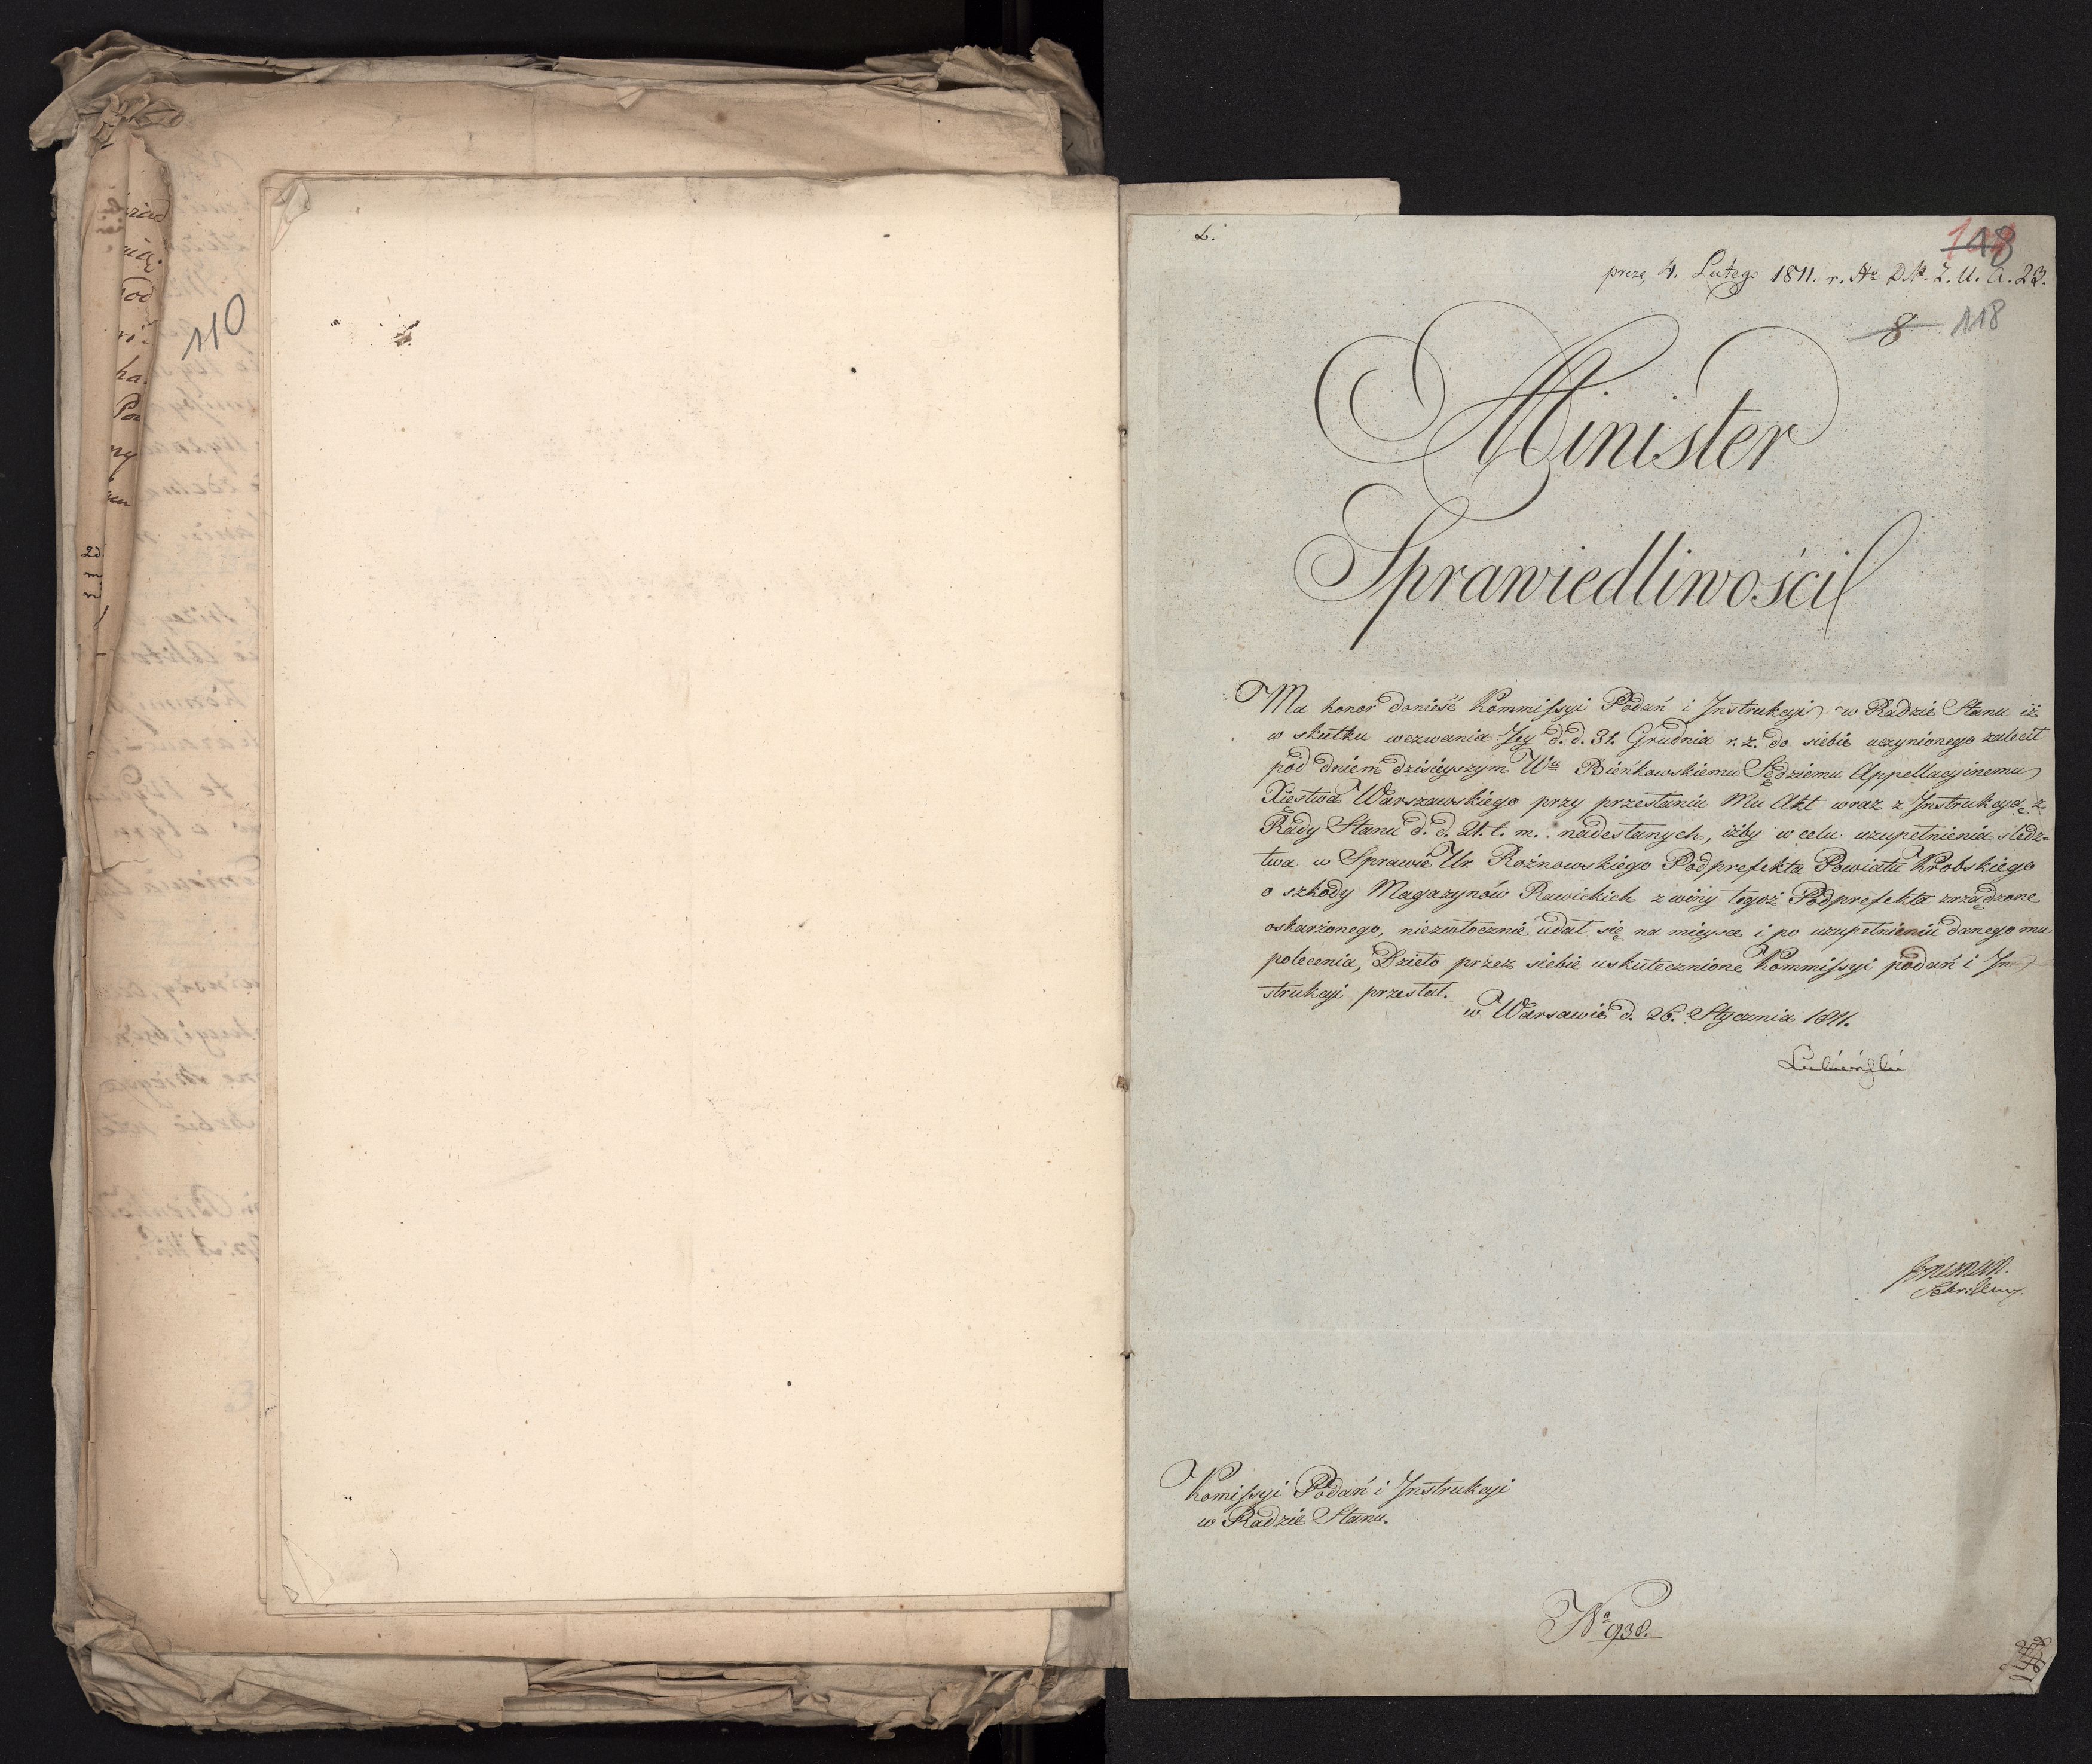 110
L.
118
prze, 4. Lutego 1811. r. No D.K.I.U.A.23.
8 118
Minister
Sprawiedliwości
Ma honor donieść Kommissyi Podań i Instrukcyi w Radzie Stanu iż
w skutku wezwania Jey d.d. 31. Grudnia r. z. do siebie uczynionego zalecił
pod dniem dzisieyszym Wu Bieńkowskiemu Sędziemu Appellacyinemu
Xięstwa Warszawskiego przy przesłaniu Mu Akt wraz z Instrukcyą z
Rady Stanu d. d. 21. t. m. nadesłanych, iżby w celu uzupełnienia śledz-
twa w Sprawie Ur. Rożnowskiego Podprefekta Powiatu Krobskiego
o szkody Magazynów Rawickich z winy tegoż Podprefekta zrządzone
oskarżonego, niezwłocznie udał się na mieysce i po uzupełnieniu danego mu
polecenia, Dzieło przez siebie uskutecznione Kommissyi podań i In-
strukcyi przesłał.
w Warsawie d. 26. Stycznia 1811.
Łubieński
Komissyi Podań i Instrukcyi
w Radzie Stanu.
No 938.